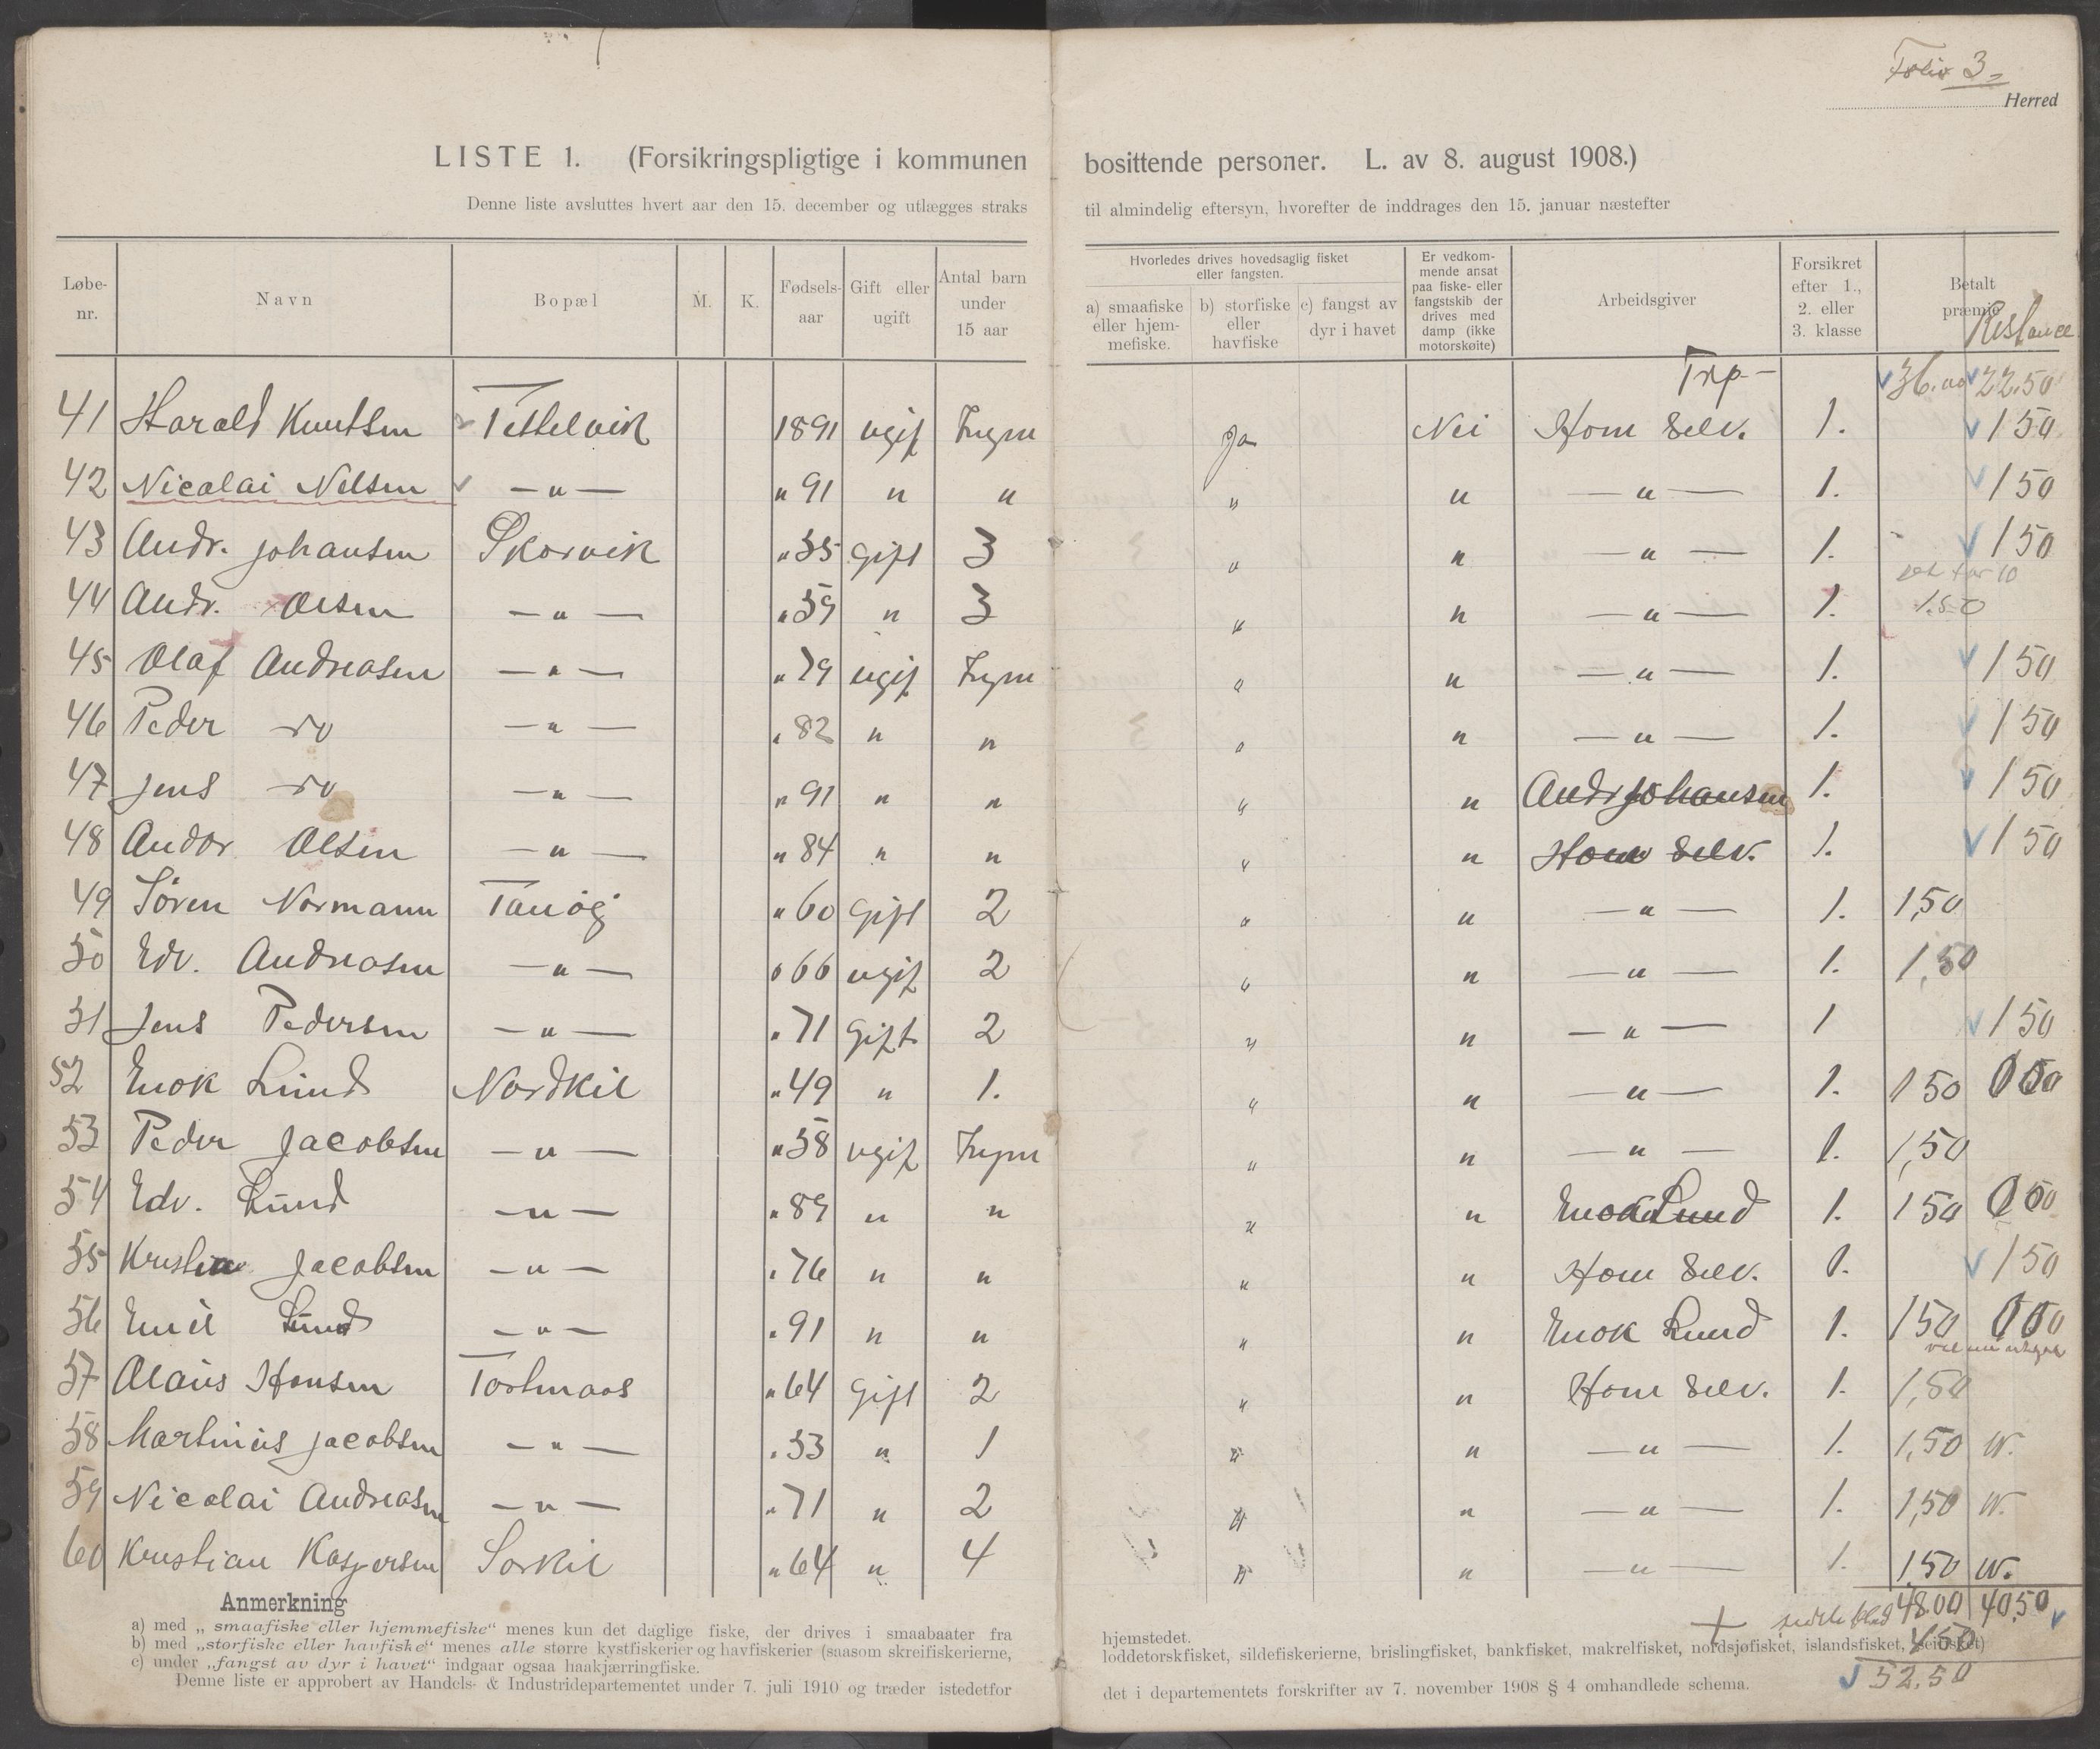 Folio 3
Herred
LISTE 1. (Forsikringspligtige i kommunen bosittende personer. L. av 8. august 1908.)
Denne liste avsluttes hvert aar den 15. december og utlægges straks til almindelig eftersyn, hvorefter de inddrages den 15. januar næstefter
Løbe-nr. Navn Bopæl M. K. Fødsels-aar Gift eller ugift Antal barn under 15 aar Hvorledes drives hovedsaglig fisket eller fangsten. a) smaafiske eller hjemmefiske. b) storfiske eller havfiske c) fangst av dyr i havet Er vedkommende ansat paa fiske- eller fangstskib der drives med damp (ikke motorskøite) Arbeidsgiver Forsikret efter 1., 2. eller 3. klasse Betalt præmie Restance
Trp- 36.00 22.50
41 Harald Knutsen Tettelvik 1891 ugif Ingen Ja Nei Ham selv. 1. 1 50
42 Nicolai Nelsen —"— " 91 " " " " —"— 1. 1 50
43 Andr. Johansen Skorvik " 55 gift 3 " " —"— 1. 1 50
44 Andr. Olsen —"— " 59 " 3 " " —"— 1. 1.50
45 Olaf Andreasen —"— " 79 ugif Ingen " " —"— 1. 1 50
46 Peder do —"— " 82 " " " " —"— 1. 1 50
47 Jens do —"— " 91 " " " " Andr Johansen 1. 1 50
48 Andor Olsen —"— " 84 " " " " Ham selv. 1. 1 50
49 Søren Normann Tanøy " 60 Gift 2 " " —"— 1. 1,50
50 Edv. Andreasen —"— " 66 ugif 2 " " —"— 1. 1,50
51 Jens Pedersen —"— " 71 Gift 2 " " —"— 1 1 50
52 Enok Lund Nordkil " 49 " 1. " " —"— 1. 1 50 0 00
53 Peder Jacobsen —"— " 58 ugif Ingen " " —"— 1. 1,50
54 Edv. Lund —"— " 89 " " " " Enok Lund 1. 1 50 0 00
55 Kristian Jacobsen —"— " 76 " " " " Ham selv. 1. 1 50
56 Emil Lund —"— " 91 " " " " Enok Lund 1. 1 50 0 00
57 Olaus Hansen Tortmaas " 64 Gift 2 " " Ham selv. 1. 1,50
58 Martinius Jacobsen —"— " 53 " 1 " " —"— 1. 1,50 W.
59 Nicolai Andreasen —"— " 71 " 2 " " —"— 1. 1,50 W.
60 Kristian Kaspersen Sørkil " 64 " 4 " " —"— 1. 1,50 W.
48.00 40,50
4 50
52,50
Anmerkning
a) med „smaafiske eller hjemmefiske“ menes kun det daglige fiske, der drives i smaabaater fra hjemstedet.
b) med „storfiske eller havfiske“ menes alle større kystfiskerier og havfiskerier (saasom skreifiskerierne, loddetorskfisket, sildefiskerierne, brislingfisket, bankfisket, makrelfisket, nordsjøfisket, islandsfisket, seifisket)
c) under „fangst av dyr i havet“ indgaar ogsaa haakjærringfiske.
Denne liste er approbert av Handels- & Industridepartementet under 7. juli 1910 og træder istedetfor det i departementets forskrifter av 7. november 1908 § 4 omhandlede schema.